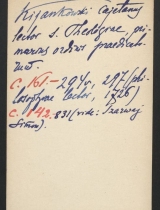 Kijankowski Cajetanus
lector s. Theologiae, pri-
marius ordinis praedicato-
rum.
C. 161 - 294v, 297 (phi-
losophiae lector, 1726)
C. 142: 831 (vide: Szarwej
Simon).